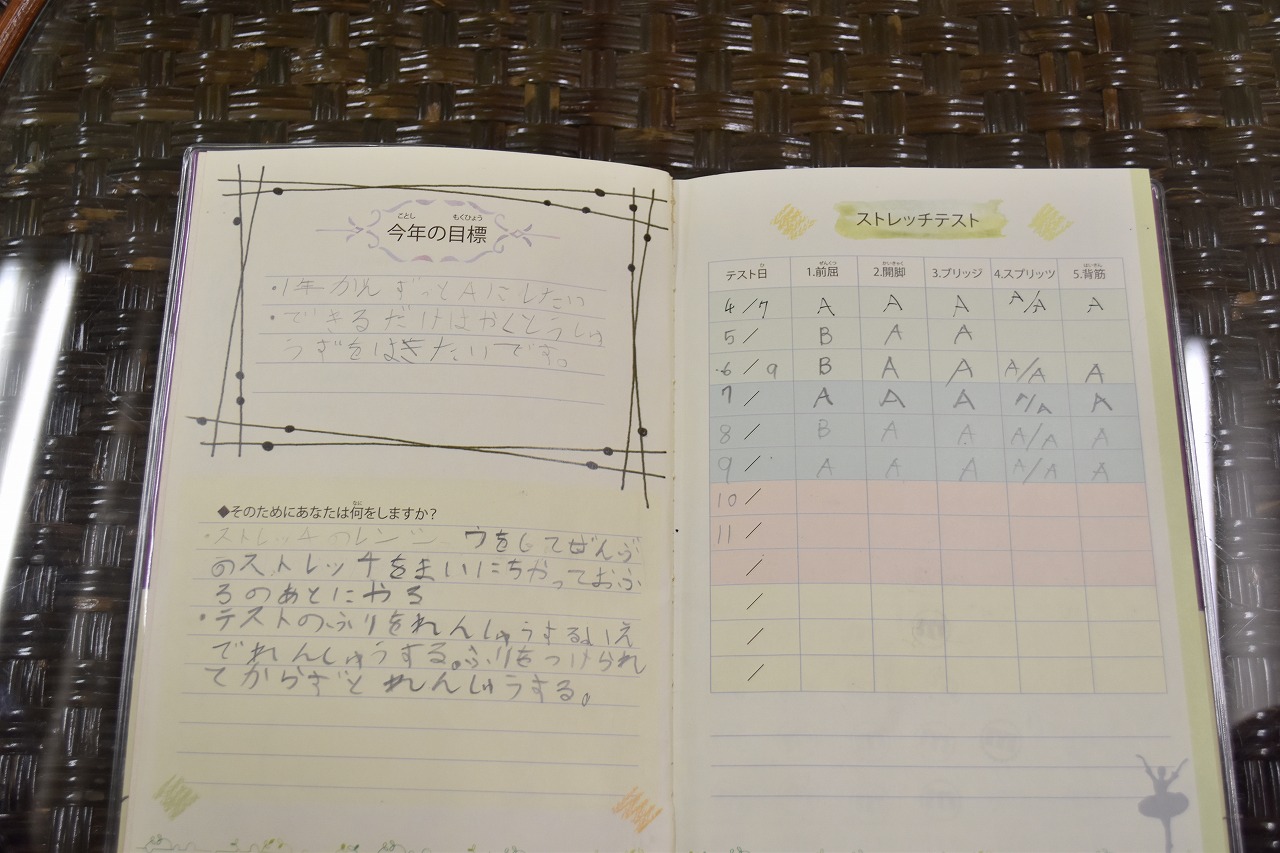 ごとし もくひょう
今年の目標
・1年かんずっとAにしたい
・できるだけはやくとうしゅ
うずをはきたいです。
なに
◆そのためにあなたは何をしますか?
・ストレッチのレンシュウをしてぜんぶ
のストレッチをまいにちやっておふ
ろのあとにやる
・テストのふりをれんしゅうする。いえ
でれんしゅうする。ふりをつけられ
てからずとれんしゅうする。
ストレッチテスト
び ぜんくつ かいきゃく はいきん
テスト日 1.前屈 2.開脚 3.ブリッジ 4.スプリッツ 5.背筋
4/7 A A A A/A A
5/ B A A
6/9 B A A A/A A
7/ A A A A/A A
8/ B A A A/A A
9/ A A A A/A A
10/
11/
/
/
/
/